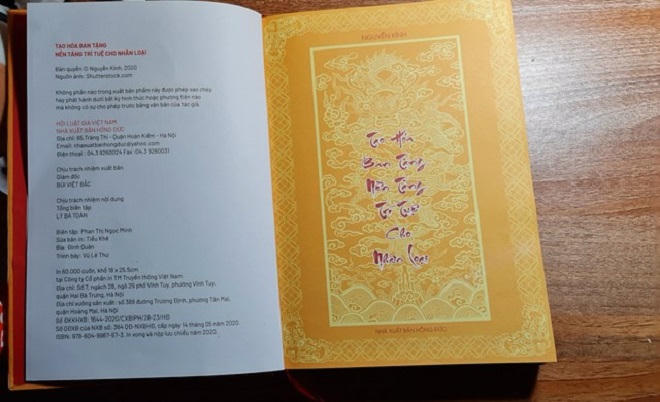 TẠO HÓA BAN TẶNG
NỀN TẢNG TRÍ TUỆ CHO NHÂN LOẠI
Bản quyền © Nguyễn Kính, 2020
Nguồn ảnh: Shutterstock.com
Không phần nào trong xuất bản phẩm này được phép sao chép
hay phát hành dưới bất kỳ hình thức hoặc phương tiện nào
mà không có sự cho phép trước bằng văn bản của tác giả.
HỘI LUẬT GIA VIỆT NAM
NHÀ XUẤT BẢN HỒNG ĐỨC
Địa chỉ: 65, Tràng Thi - Quận Hoàn Kiếm - Hà Nội
Email: nhaxuatbanhongduc@yahoo.com
Điện thoại : 04.3 9260024 Fax :04.3 9260031
Chịu trách nhiệm xuất bản
Giám đốc
BÙI VIỆT BẮC
Chịu trách nhiệm nội dung
Tổng biên tập
LÝ BÁ TOÀN
Biên tập: Phan Thị Ngọc Minh
Sửa bản in: Tiểu Khê
Bìa: Đình Quân
Trình bày: Vũ Lê Thư
In 60.000 cuốn, khổ 18 x 25,5cm
tại Công ty Cổ phần in TM Truyền thông Việt Nam
Địa chỉ: Số 7, ngách 28, ngõ 26 phố Vĩnh Tuy, phường Vĩnh Tuy,
quận Hai Bà Trưng, Hà Nội
Địa chỉ xưởng sản xuất : số 389 đường Trương Định, phường Tân Mai,
quận Hoàng Mai, Hà Nội
Số ĐKKHXB: 1644-2020/CXBIPH/28-23/HĐ
Số QĐXB của NXB số: 364/QĐ-NXBHĐ, cấp ngày 14 tháng 05 năm 2020.
ISBN: 978-604-9967-57-3. In xong và nộp lưu chiểu năm 2020.
NGUYỄN KÍNH
Tạo Hóa
Ban Tặng
Nền Tảng
Trí Tuệ
Cho
Nhân Loại
NHÀ XUẤT BẢN HỒNG ĐỨC